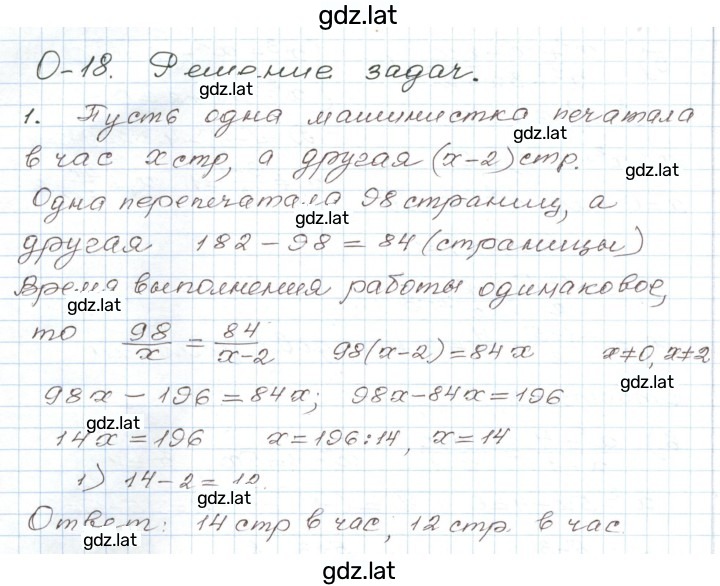 gdz.lat
О-18. Решение задач.
gdz.lat
1. Пусть одна машинистка печатала
gdz.lat
в час x стр, а другая (x-2) стр.
gdz.lat
Одна перепечатала 98 страниц, а
gdz.lat
другая 182 - 98 = 84 (страницы)
Время выполнения работы одинаковое,
gdz.lat
то 98/x = 84/(x-2) 98(x-2) = 84x x≠0, x≠2
gdz.lat
98x - 196 = 84x; 98x-84x = 196
gdz.lat
14x = 196 x = 196:14, x = 14
1) 14-2 = 12.
gdz.lat
Ответ: 14 стр в час, 12 стр. в час.
gdz.lat
gdz.lat